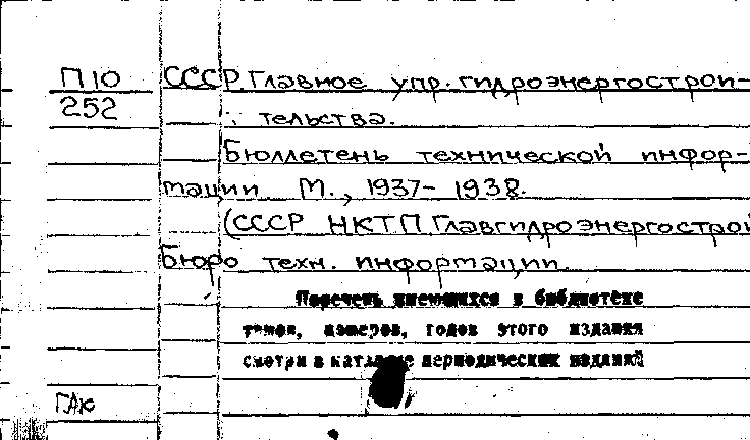 П10 СССР. Главное упр. гидроэнергострои-
252 тельства.
Бюллетень технической инфор-
мации М., 1937-1938.
(СССР НКТП Главгидроэнергострой
Бюро техн. информации.
Перечень имеющихся в библиотеке
томов, номеров, годов этого издания
смотри в каталоге периодических изданий
ГАК